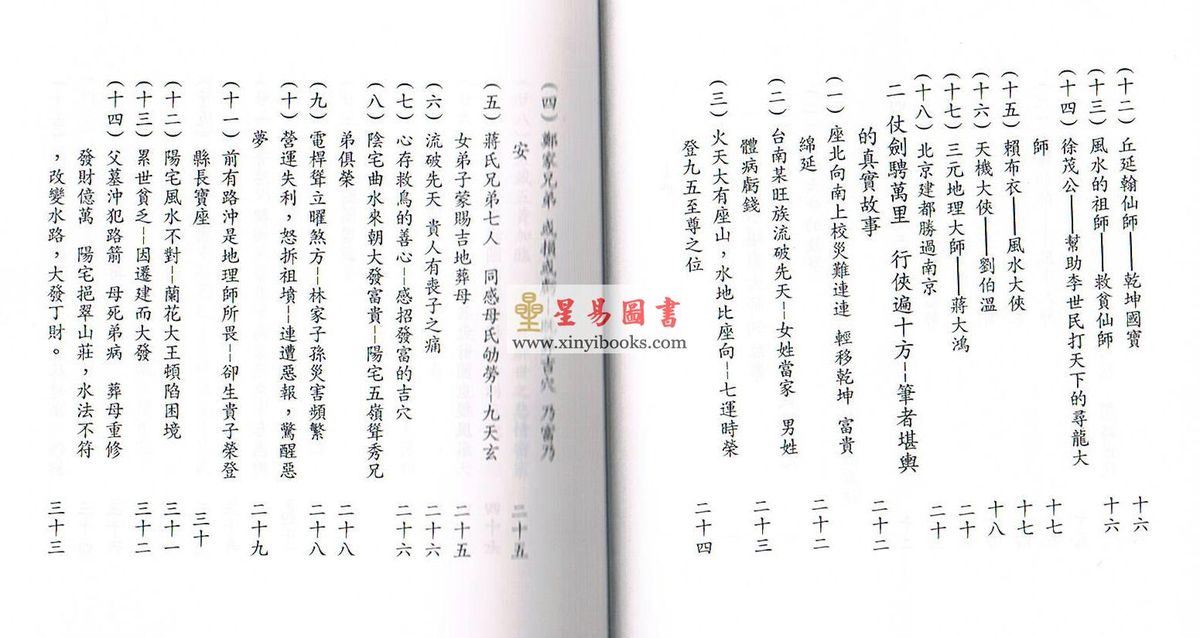 (十二)丘延翰仙師——乾坤國寶 十六
(十三)風水的祖師——救貧仙師 十六
(十四)徐茂公——幫助李世民打天下的尋龍大
師 十七
(十五)賴布衣——風水大俠 十七
(十六)天機大俠——劉伯溫 十八
(十七)三元地理大師——蔣大鴻 二十
(十八)北京建都勝過南京 二十
二 仗劍騁萬里 行俠遍十方--筆者堪輿
的真實故事 二十二
(一)座北向南上校災難連連 輕移乾坤 富貴
綿延 二十二
(二)台南某旺族流破先天--女姓當家 男姓
體病虧錢 二十三
(三)火天大有座山,水地比座向--七運時榮
登九五至尊之位 二十四
(四)鄭家兄弟 或損或 吉穴 乃富乃
安 二十五
(五)蔣氏兄弟七人 同感母氏劬勞--九天玄
女弟子蒙賜吉地葬母 二十五
(六)流破先天 貴人有喪子之痛 二十六
(七)心存救鳥的善心--感招發富的吉穴 二十六
(八)陰宅曲水來朝大發富貴--陽宅五嶺聳秀兄
弟俱榮 二十八
(九)電桿聳立曜煞方--林家子孫災害頻繁 二十八
(十)營運失利,怒拆祖墳--連遭惡報,驚醒惡
夢 二十九
(十一)前有路沖是地理師所畏--卻生貴子榮登
縣長寶座 三十
(十二)陽宅風水不對--蘭花大王頓陷困境 三十一
(十三)累世貧乏--因遷建而大發 三十二
(十四)父墓沖犯路箭 母死弟病 葬母重修
發財億萬 陽宅挹翠山莊,水法不符
,改變水路,大發丁財。 三十三
星易圖書
www.xinyibooks.com